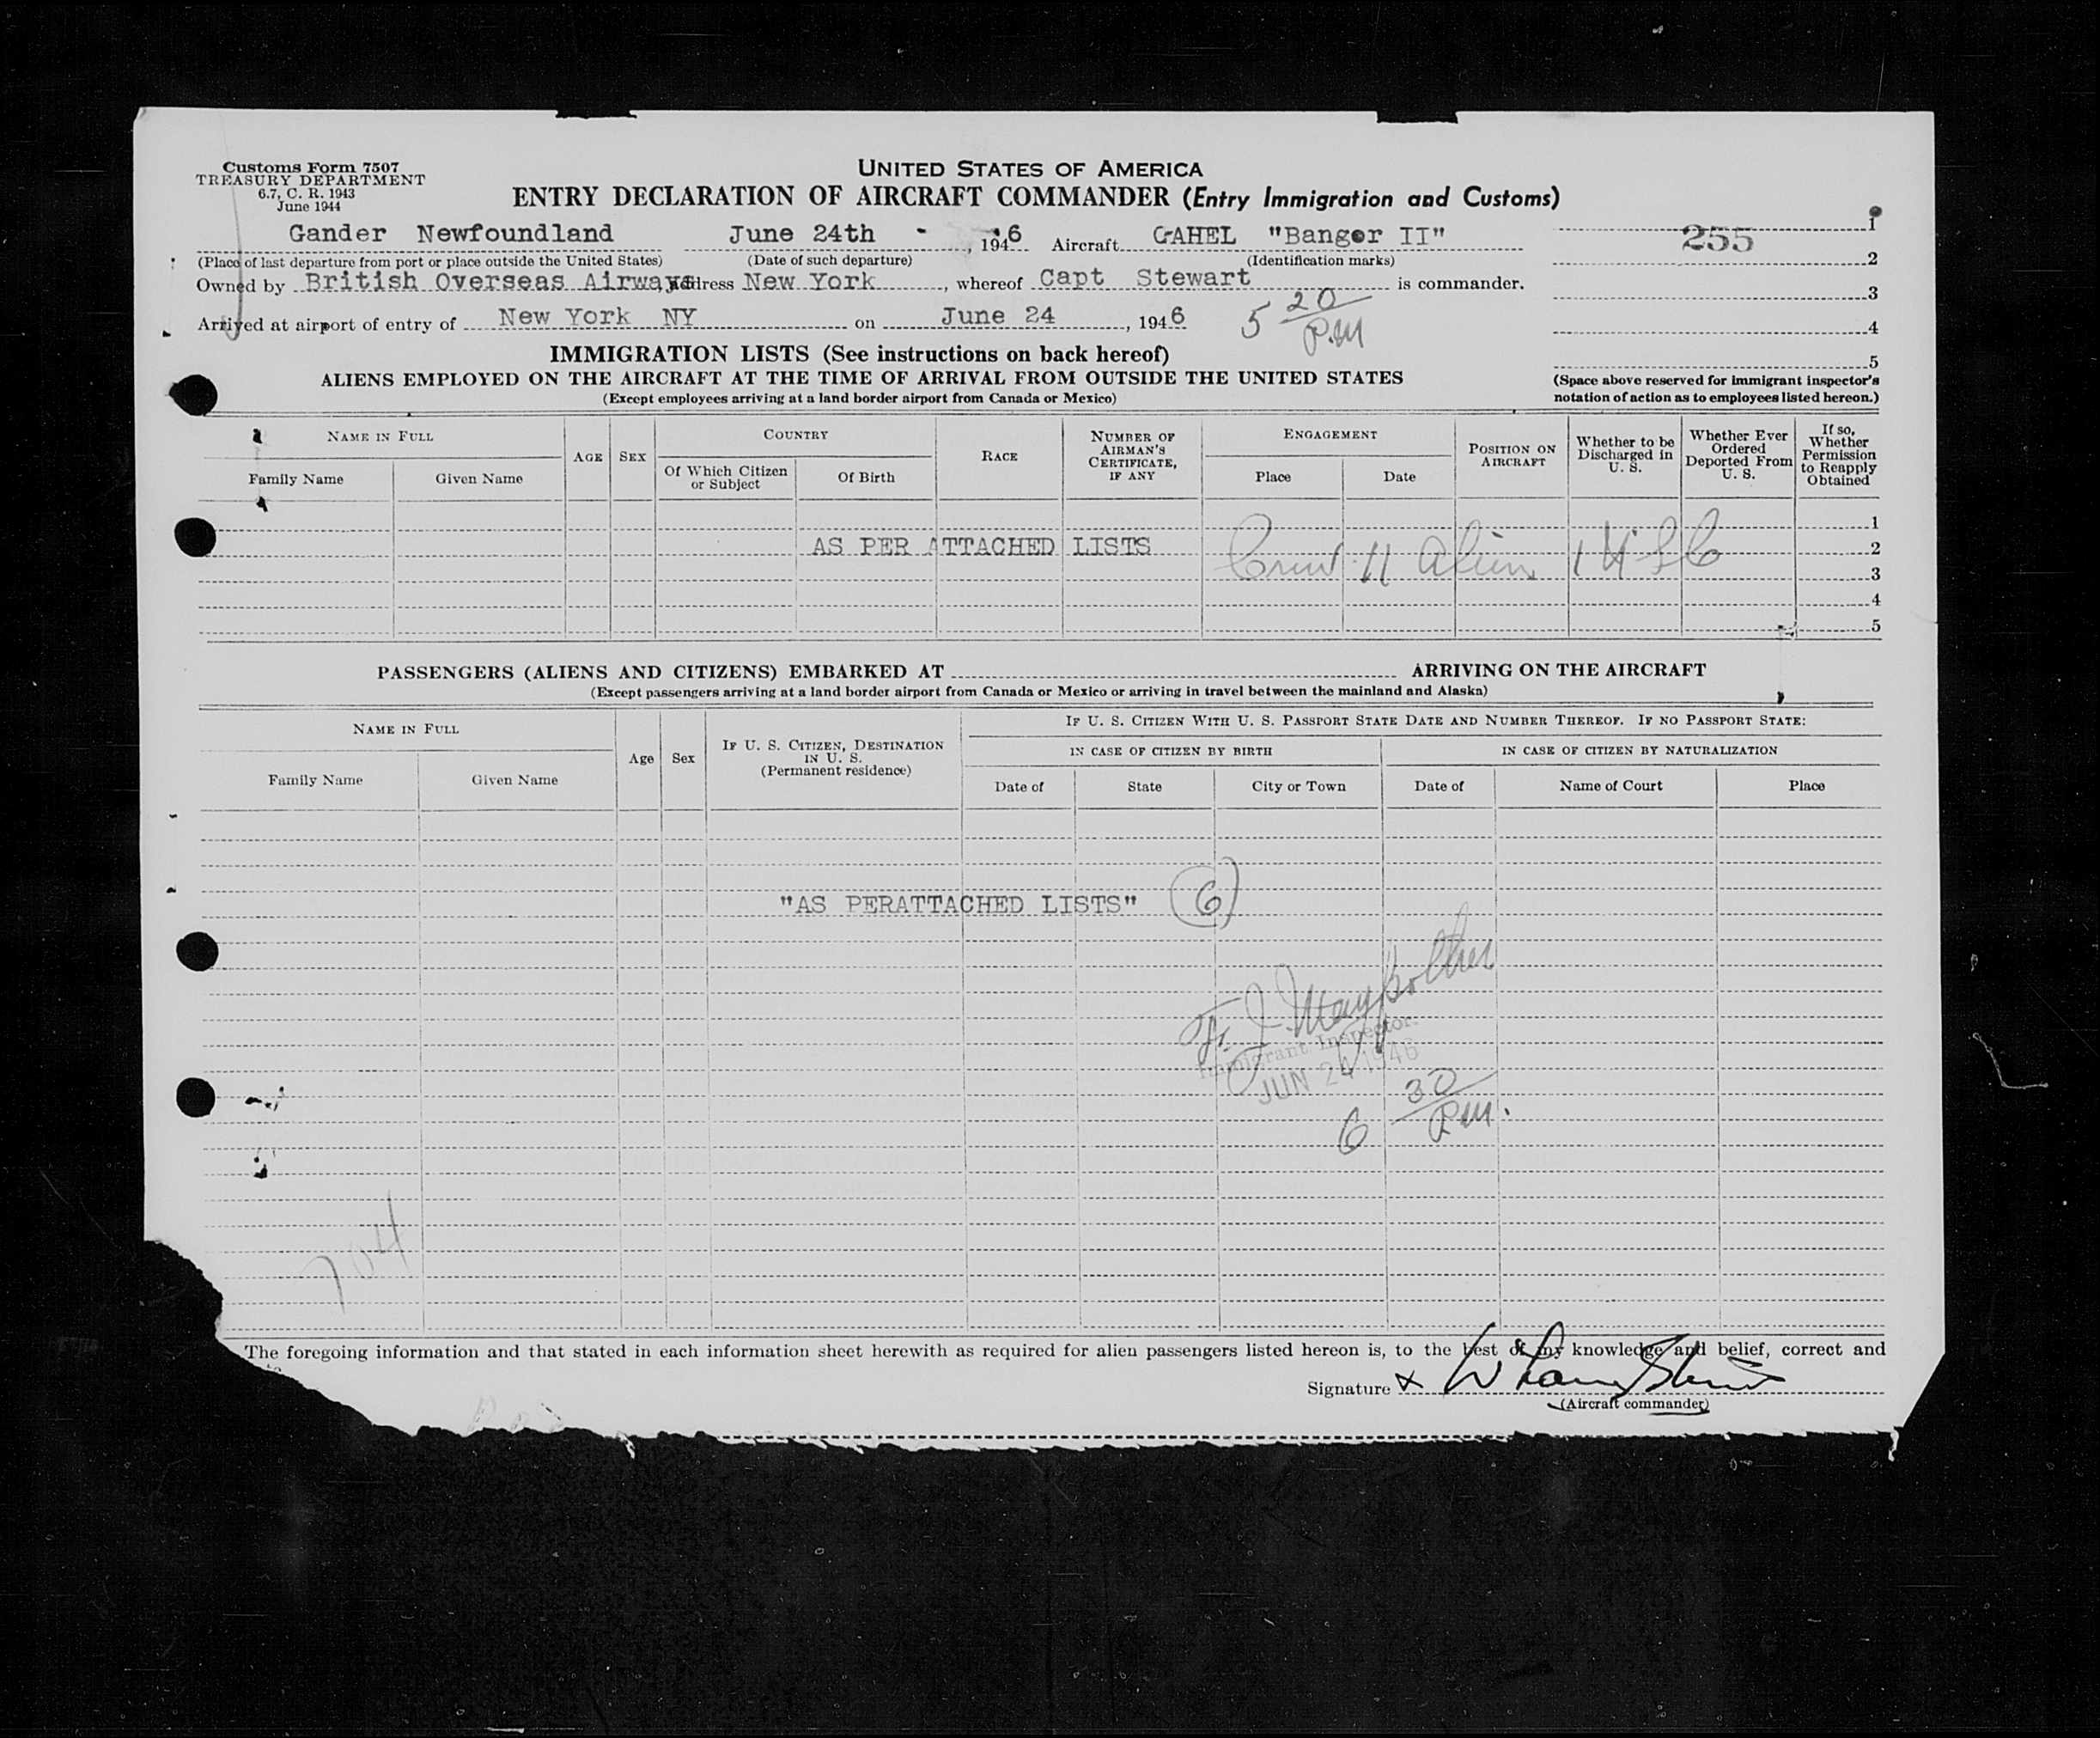 Customs Form 7507
TREASURY DEPARTMENT
6.7, C. R. 1943
June 1944
UNITED STATES OF AMERICA
ENTRY DECLARATION OF AIRCRAFT COMMANDER (Entry Immigration and Customs)
Gander Newfoundland June 24th - , 1946 Aircraft GAHEL "Bangor II"
(Place of last departure from port or place outside the United States) (Date of such departure) (Identification marks)
Owned by British Overseas Airways Address New York , whereof Capt Stewart is commander.
Arrived at airport of entry of New York NY on June 24 , 1946 5 20 P.M
255
1
2
3
4
5
(Space above reserved for immigrant inspector's
notation of action as to employees listed hereon.)
IMMIGRATION LISTS (See instructions on back hereof)
ALIENS EMPLOYED ON THE AIRCRAFT AT THE TIME OF ARRIVAL FROM OUTSIDE THE UNITED STATES
(Except employees arriving at a land border airport from Canada or Mexico)
NAME IN FULL
Family Name Given Name
AGE
SEX
COUNTRY
Of Which Citizen or Subject
Of Birth
RACE
NUMBER OF AIRMAN'S CERTIFICATE, IF ANY
ENGAGEMENT
Place Date
POSITION ON AIRCRAFT
Whether to be Discharged in U. S.
Whether Ever Ordered Deported From U. S.
If so, Whether Permission to Reapply Obtained
1
AS PER ATTACHED LISTS Crew 11 Alien 1 2
3
4
5
PASSENGERS (ALIENS AND CITIZENS) EMBARKED AT ARRIVING ON THE AIRCRAFT
(Except passengers arriving at a land border airport from Canada or Mexico or arriving in travel between the mainland and Alaska)
NAME IN FULL
Family Name Given Name
Age
Sex
IF U. S. CITIZEN, DESTINATION IN U. S.
(Permanent residence)
IF U. S. CITIZEN WITH U. S. PASSPORT STATE DATE AND NUMBER THEREOF. IF NO PASSPORT STATE:
IN CASE OF CITIZEN BY BIRTH IN CASE OF CITIZEN BY NATURALIZATION
Date of State City or Town Date of Name of Court Place
"AS PERATTACHED LISTS" 6
Immigrant Inspector.
JUN 24 1946
6 30 P.M.
704
The foregoing information and that stated in each information sheet herewith as required for alien passengers listed hereon is, to the best of my knowledge and belief, correct and
Signature x
(Aircraft commander)